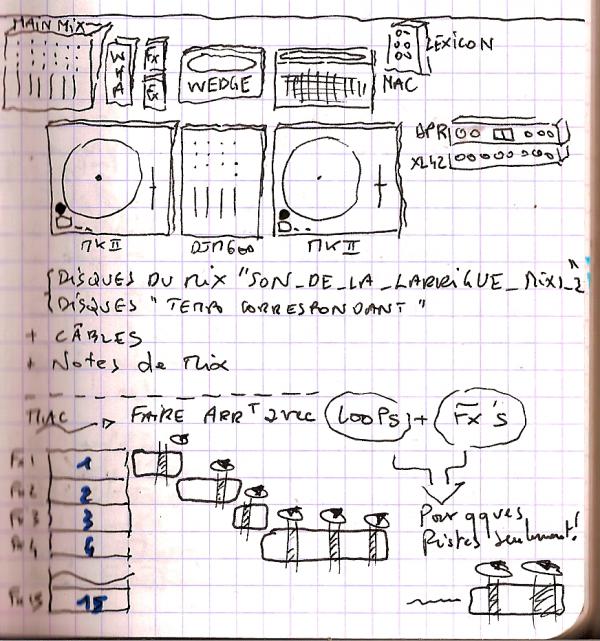 MAIN MIX
FX
FX
WEDGE
MAC
LEXICON
XL42
MKII
DJM600
MKII
DISQUES DU MIX "SON_DE_LA_LARRIGUE_MIX1_2"
DISQUES "TEMPO CORRESPONDANT"
+ CÂBLES
+ Notes de Mix
MAC
FAIRE ARRT avec LOOPS + FX's
1
2
3
4
15
Pour qques
Pistes seulement!